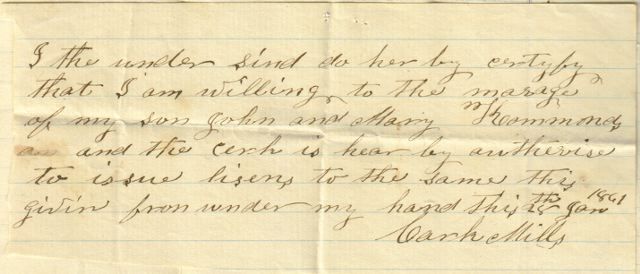 I the under sind do her by certyfy
that I am willing to the marage
of my son John and Mary Hommonds
and the cerk is hear by autherise
to issue lisens to the same this
givin fron under my hand this 28th Jan 1861
Cark Mills